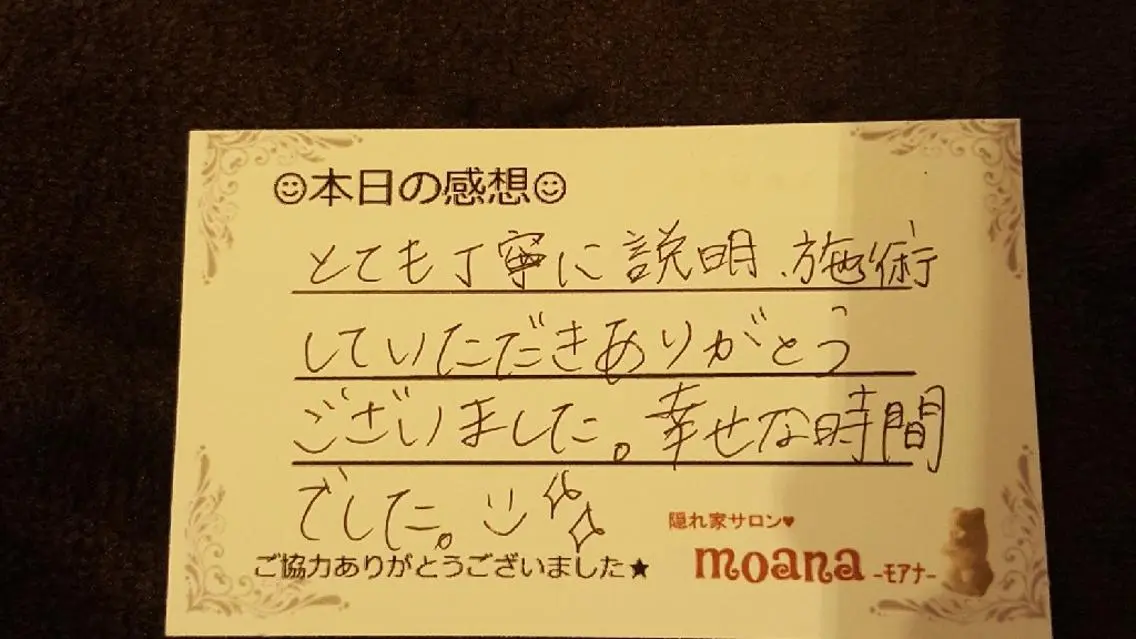 ☺本日の感想☺
とても丁寧に説明、施術
していただきありがとう
ございました。幸せな時間
でした。
隠れ家サロン♥
moana -モアナ-
ご協力ありがとうございました★